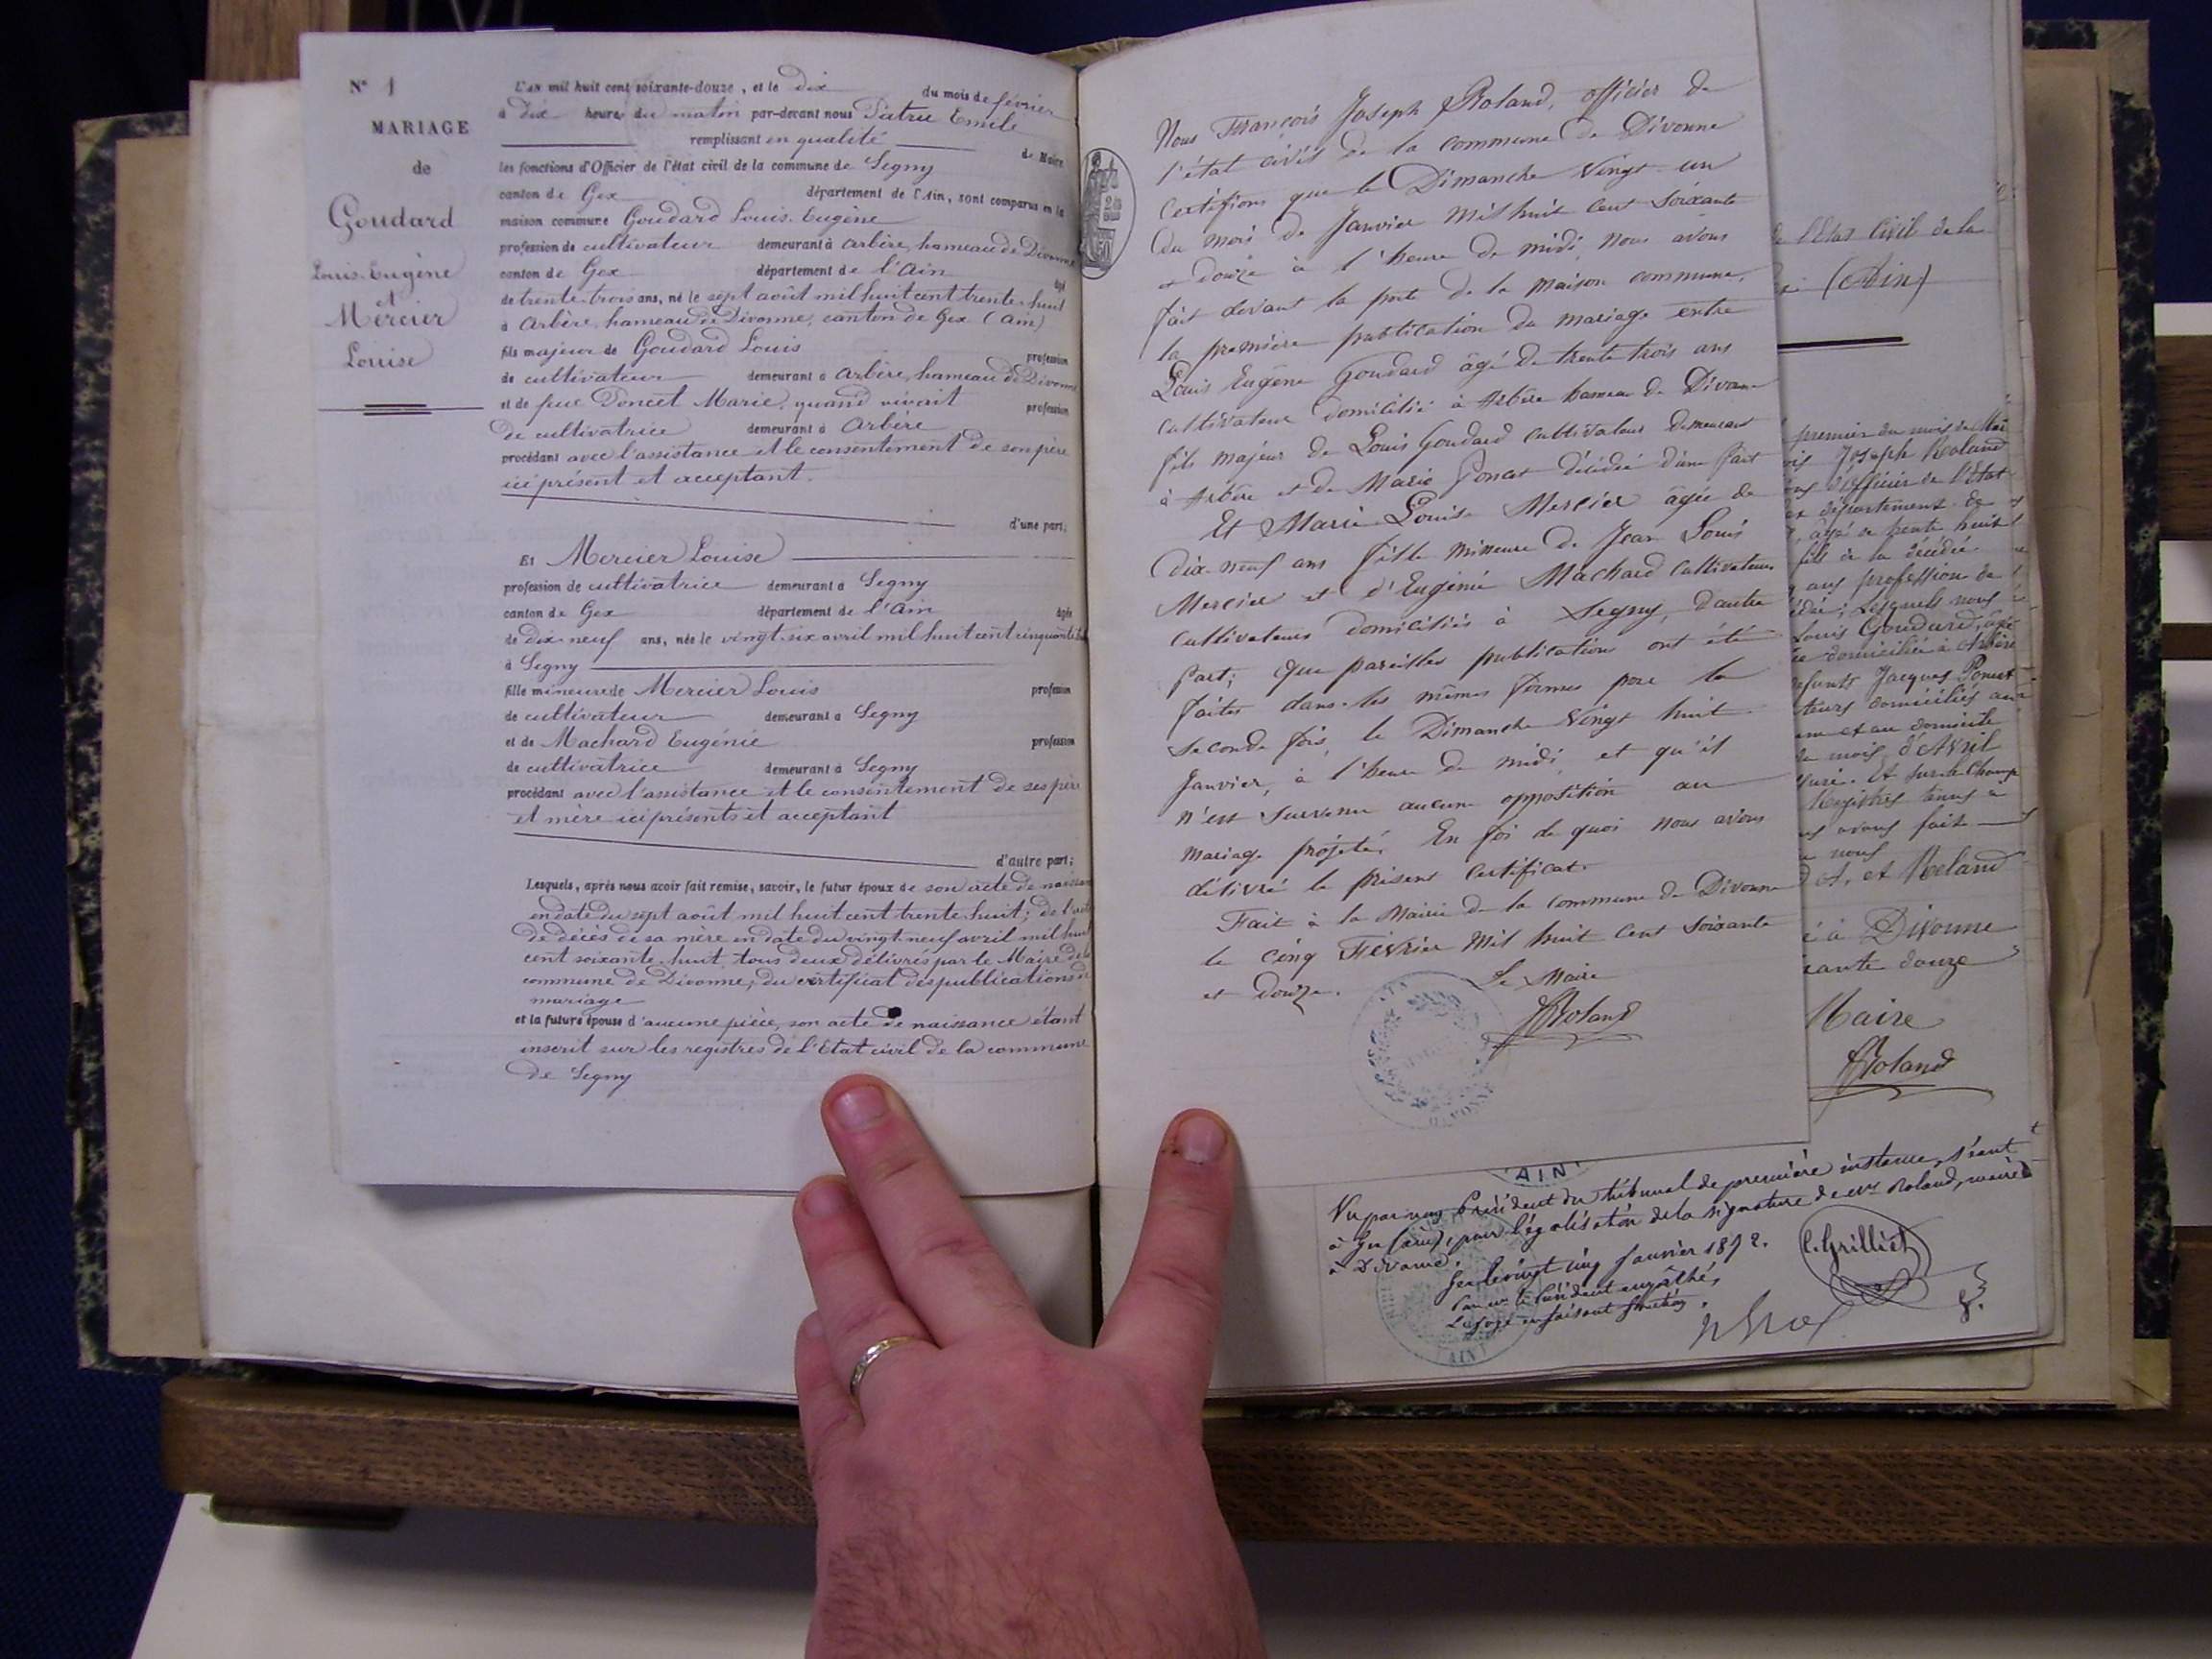 N° 1
MARIAGE
de
Goudard
Louis-Eugène
et
Mercier
Louise
L'an mil huit cent soixante-douze, et le dix du mois de février
à dix heures du matin par-devant nous Patru Emile
remplissant en qualité de Maire
les fonctions d'Officier de l'état civil de la commune de Segny
canton de Gex département de l'Ain, sont comparus en la
maison commune Goudard Louis-Eugène
profession de cultivateur demeurant à Arbère, hameau de Divonne
canton de Gex département de l'Ain âgé
de trente-trois ans, né le sept août mil huit cent trente-huit
à Arbère, hameau de Divonne, canton de Gex (Ain)
fils majeur de Goudard Louis profession
de cultivateur demeurant à Arbère, hameau de Divonne
et de feue Poncet Marie, quand vivait profession
de cultivatrice demeurant à Arbère
procédant avec l'assistance et le consentement de son père
ici présent et acceptant.
d'une part;
Et Mercier Louise
profession de cultivatrice demeurant à Segny
canton de Gex département de l'Ain âgée
de dix-neuf ans, née le vingt-six avril mil huit cent
à Segny
fille mineure de Mercier Louis profession
de cultivateur demeurant à Segny
et de Machard Eugénie profession
de cultivatrice demeurant à Segny
procédant avec l'assistance et le consentement de ses père
et mère ici présents et acceptant
d'autre part;
Lesquels, après nous avoir fait remise, savoir, le futur époux de son acte de
en date du sept août mil huit cent trente-huit; de l'
de décès de sa mère en date du vingt-neuf avril mil huit
cent soixante-huit, tous deux délivrés par le Maire de la
commune de Divonne; du certificat des publications de
mariage
et la future épouse d'aucune pièce, son acte de naissance étant
inscrit sur les registres de l'Etat civil de la commune
de Segny
Nous François Joseph Roland, officier de
l'état civil de la commune de Divonne
Certifions que le Dimanche Vingt-un
du mois de Janvier mil huit cent soixante
et douze à l'heure de midi, nous avons
fait devant la porte de la maison commune,
la première publication du mariage entre
Louis Eugène Goudard âgé de trente trois ans
cultivateur domicilié à Arbère hameau de Divonne
fils majeur de Louis Goudard cultivateur demeurant
à Arbère et de Marie Poncet décédée d'une part
Et Marie Louise Mercier âgée de
dix-neuf ans fille mineure de Jean Louis
Mercier et d'Eugénie Machard cultivateurs
cultivateurs domiciliés à Segny, d'autre
part; que pareilles publications ont été
faites dans les mêmes formes pour la
seconde fois, le Dimanche Vingt huit
Janvier, à l'heure de midi, et qu'il
n'est survenu aucune opposition au
mariage projeté. En foi de quoi nous avons
délivré le présent certificat.
Fait à la Mairie de la commune de Divonne
le cinq Février mil huit cent soixante
et douze.
Le Maire
JRoland
DIVONNE
de l'Etat Civil de la
(Ain)
premier du mois de Mai
Joseph Roland
l'officier de l'Etat
département de
âgé de trente huit
fils de la décédée
ans profession de
Lesquels nous
Louis Goudard, âgé
domiciliée à Arbère
défunts Jacques Poncet
domiciliés au
et au domicile
du mois d'Avril
Et sur le champ
Registres tenus
avons fait
nous
et Roland
à Divonne
soixante douze
Maire
JRoland
AIN
Vu par nous Président du tribunal de première instance, séant
à Gex (ain), pour légalisation de la signature de Mr Roland, maire
à Divonne.
Gex le vingt cinq Janvier 1872.
Pour Mr le Président empêché,
Le juge en faisant fonction.
C. Grilliet
AIN